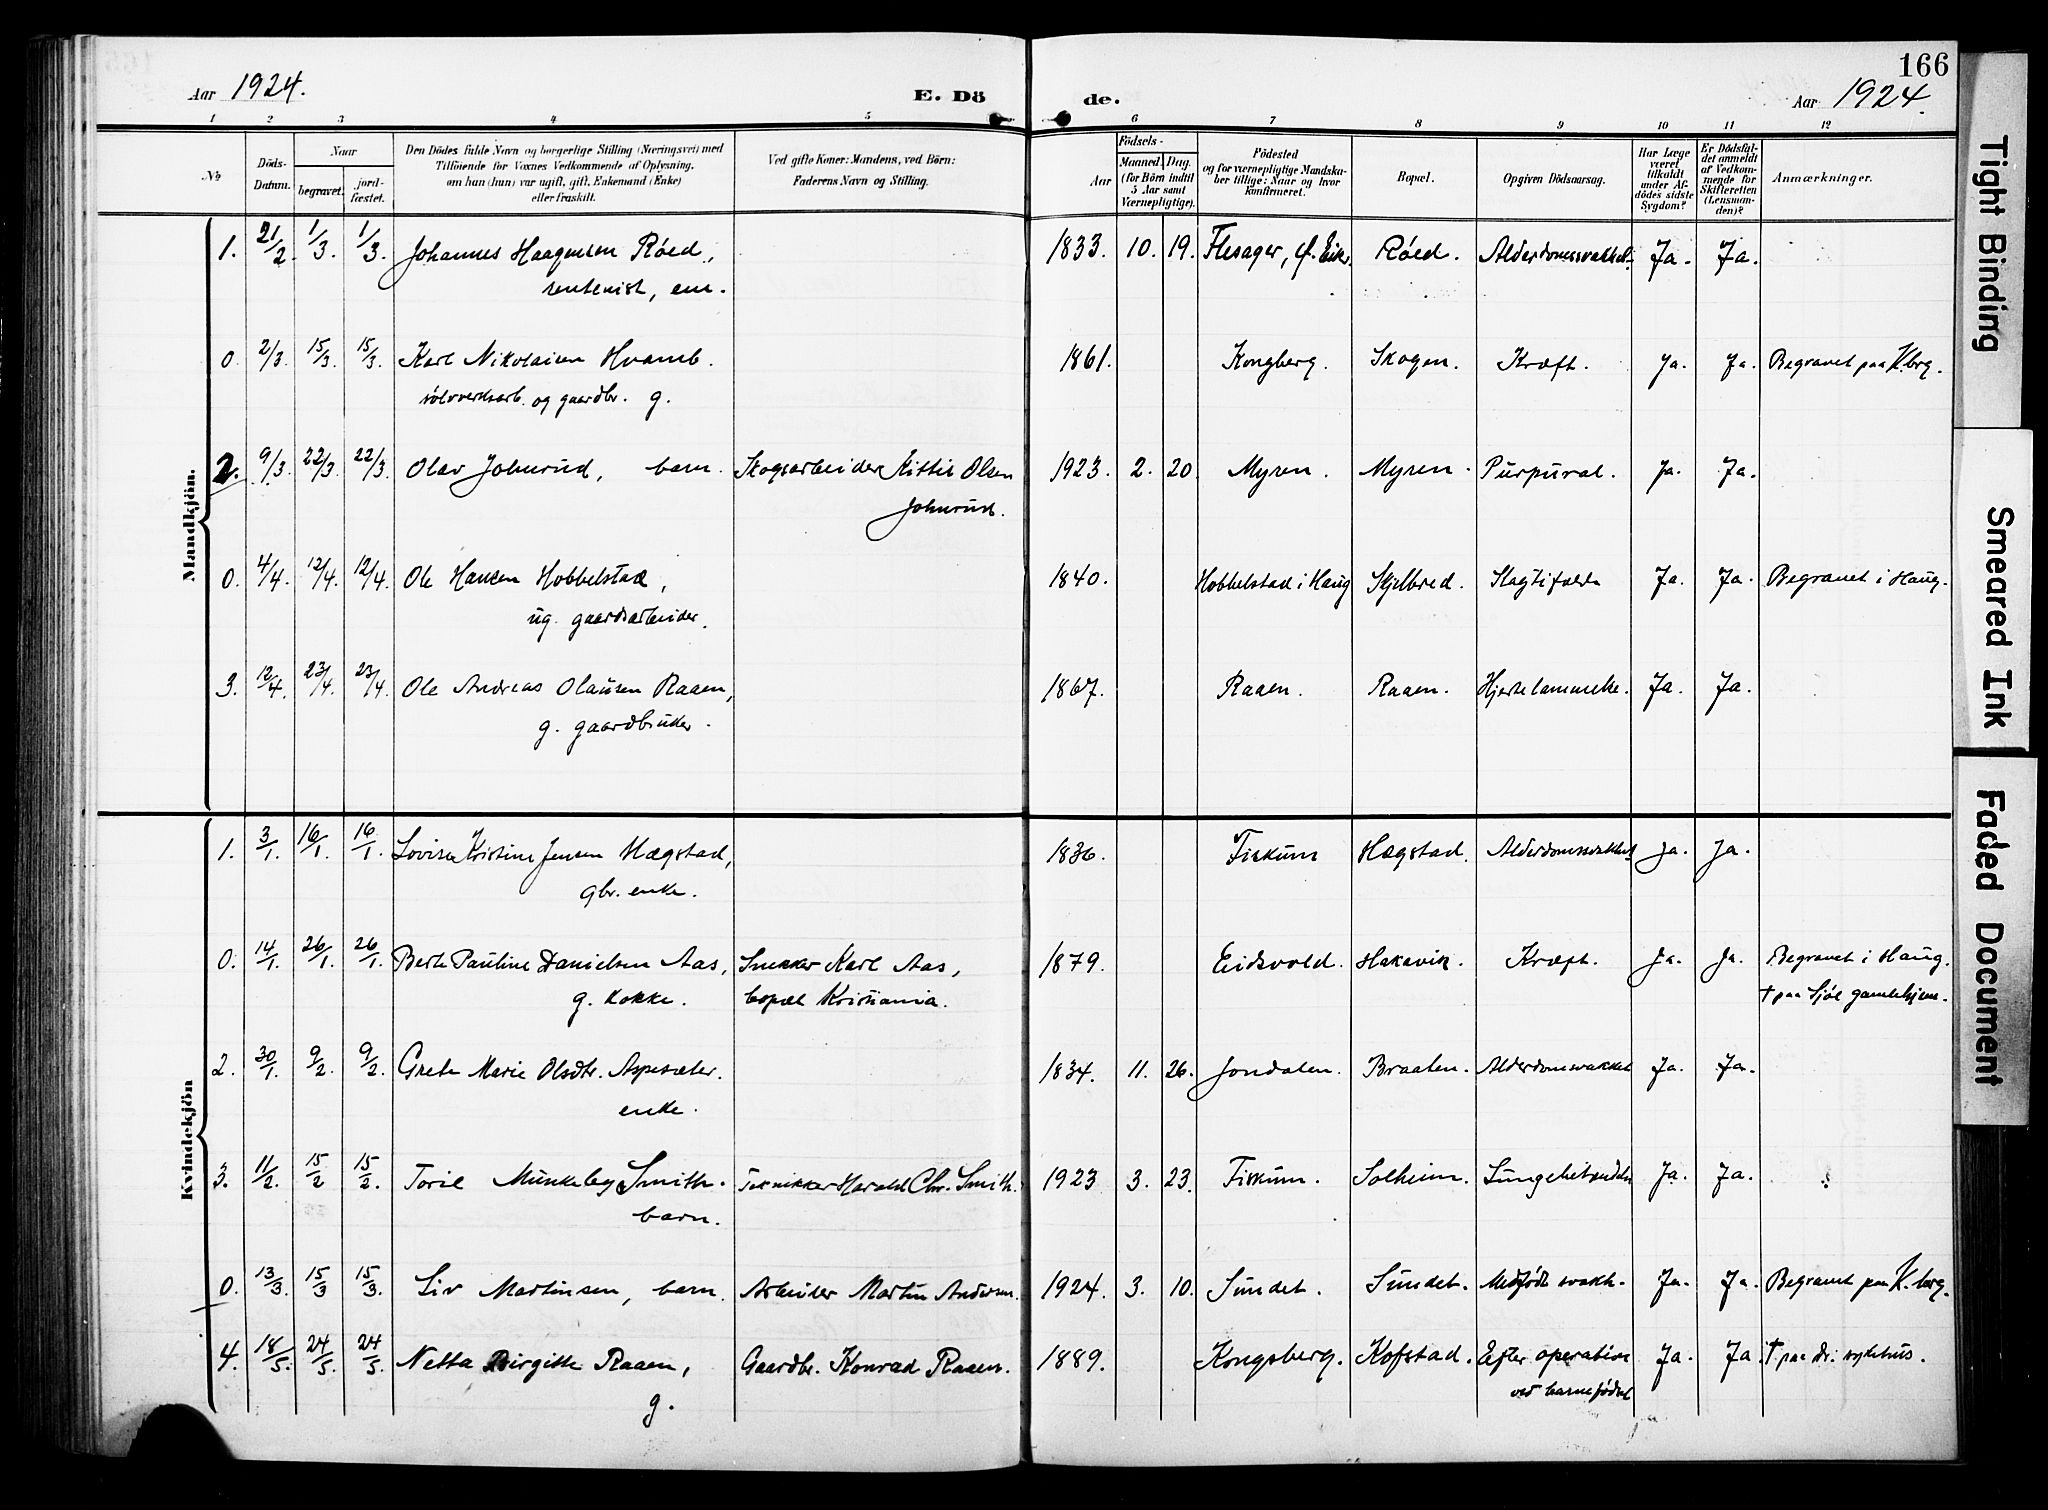 166
Aar 1924.
E. Dö
de.
Aar 1924
1 2 3 4 5 6 7 8 9 10 11 12
No
Döds-
Datum.
Naar
begravet.
jord-
fæstet.
Den Dödes fulde Navn og borgerlige Stilling (Næringsvei) med
Tilföiende for Voxnes Vedkommende af Oplysning,
om han (hun) var ugift, gift, Enkemand (Enke)
eller fraskilt.
Ved gifte Koner: Mandens, ved Börn:
Faderens Navn og Stilling.
Aar
Födsels-
Maaned. Dag.
(for Börn indtil
5 Aar samt
Værnepligtige).
Födested
og for værnepligtige Mandska-
ber tillige: Naar og hvor
konfirmeret.
Bopæl.
Opgiven Dödsaarsag.
Har Læge
været
tilkaldt
under Af-
dödes sidste
Sygdom?
Er Dödsfal-
det anmeldt
af Vedkom-
mende for
Skifteretten
(Lensman-
den)?
Anmærkninger.
Mandkjön.
1. 21/2 1/3. 1/3. Johannes Haagensen Röed, 1833. 10. 19. Flesager, Ø. Eiker Röed. Alderdomssvakhet. Ja. Ja.
rentenist, em.
0. 2/3. 15/3. 15/3. Karl Nikolaisen Hvamb. 1861. Kongberg. Skogen. Kræft. Ja. Ja. Begravet paa K.brg.
sölvverksarb. og gaardbr. g.
2. 9/3. 22/3. 22/3. Olav Johnrud, barn. Skogsarbeider Kittil Olsen 1923. 2. 20. Myren. Myren. Purpural. Ja. Ja.
Johnrud.
0. 4/4. 12/4. 12/4. Ole Hansen Hobbelstad, 1840. Hobbelstad i Haug Skjelbred. Slagtifælde Ja. Ja. Begravet i Haug.
ug. gaardsarbeider.
3. 12/4. 23/4. 23/4. Ole Andreas Olausen Raaen, 1867. Raaen. Raaen. Hjertelammelse. Ja. Ja.
g. gaardbruker.
Kvindekjön
1. 3/1. 16/1. 16/1. Lovise Kristine Jensen Hægstad, 1836. Fiskum Hægstad. Alderdomssvakhet Ja. Ja.
gbr. enke.
0. 14/1. 26/1. 26/1. Berte Pauline Danielsen Aas, Snekker Karl Aas, 1879. Eidsvold. Hakavik. Kræft. Ja. Ja. Begravet i Haug.
g. kokke. bopæl Kristiania. † paa gamlehjem.
2. 30/1. 9/2. 9/2. Grete Marie Olsdtr. Aspesæter. 1834. 11. 26. Jondalen. Braaten. Alderdomsvakhet Ja. Ja.
enke.
3. 11/2. 15/2 15/2. Toril Munkeby Smith. Tekniker Harald Chr. Smith. 1923 3. 23. Fiskum. Solheim. Lungebetændelse Ja. Ja.
barn.
0. 13/3. 15/3 15/3. Liv Martinsen, barn. Arbeider Martin Andersen. 1924. 3. 10. Sundet. Sundet. Medfødt svakh. Ja. Ja. Begravet paa K.berg.
4. 18/5. 24/5. 24/5. Netta Birgitte Raaen, Gaardbr. Konrad Raaen. 1889. Kongsberg. Kofstad. Efter operation Ja. Ja. † paa Dr. sykehus.
g. ved barnefødsel
Tight Binding
Smeared Ink
Faded Document